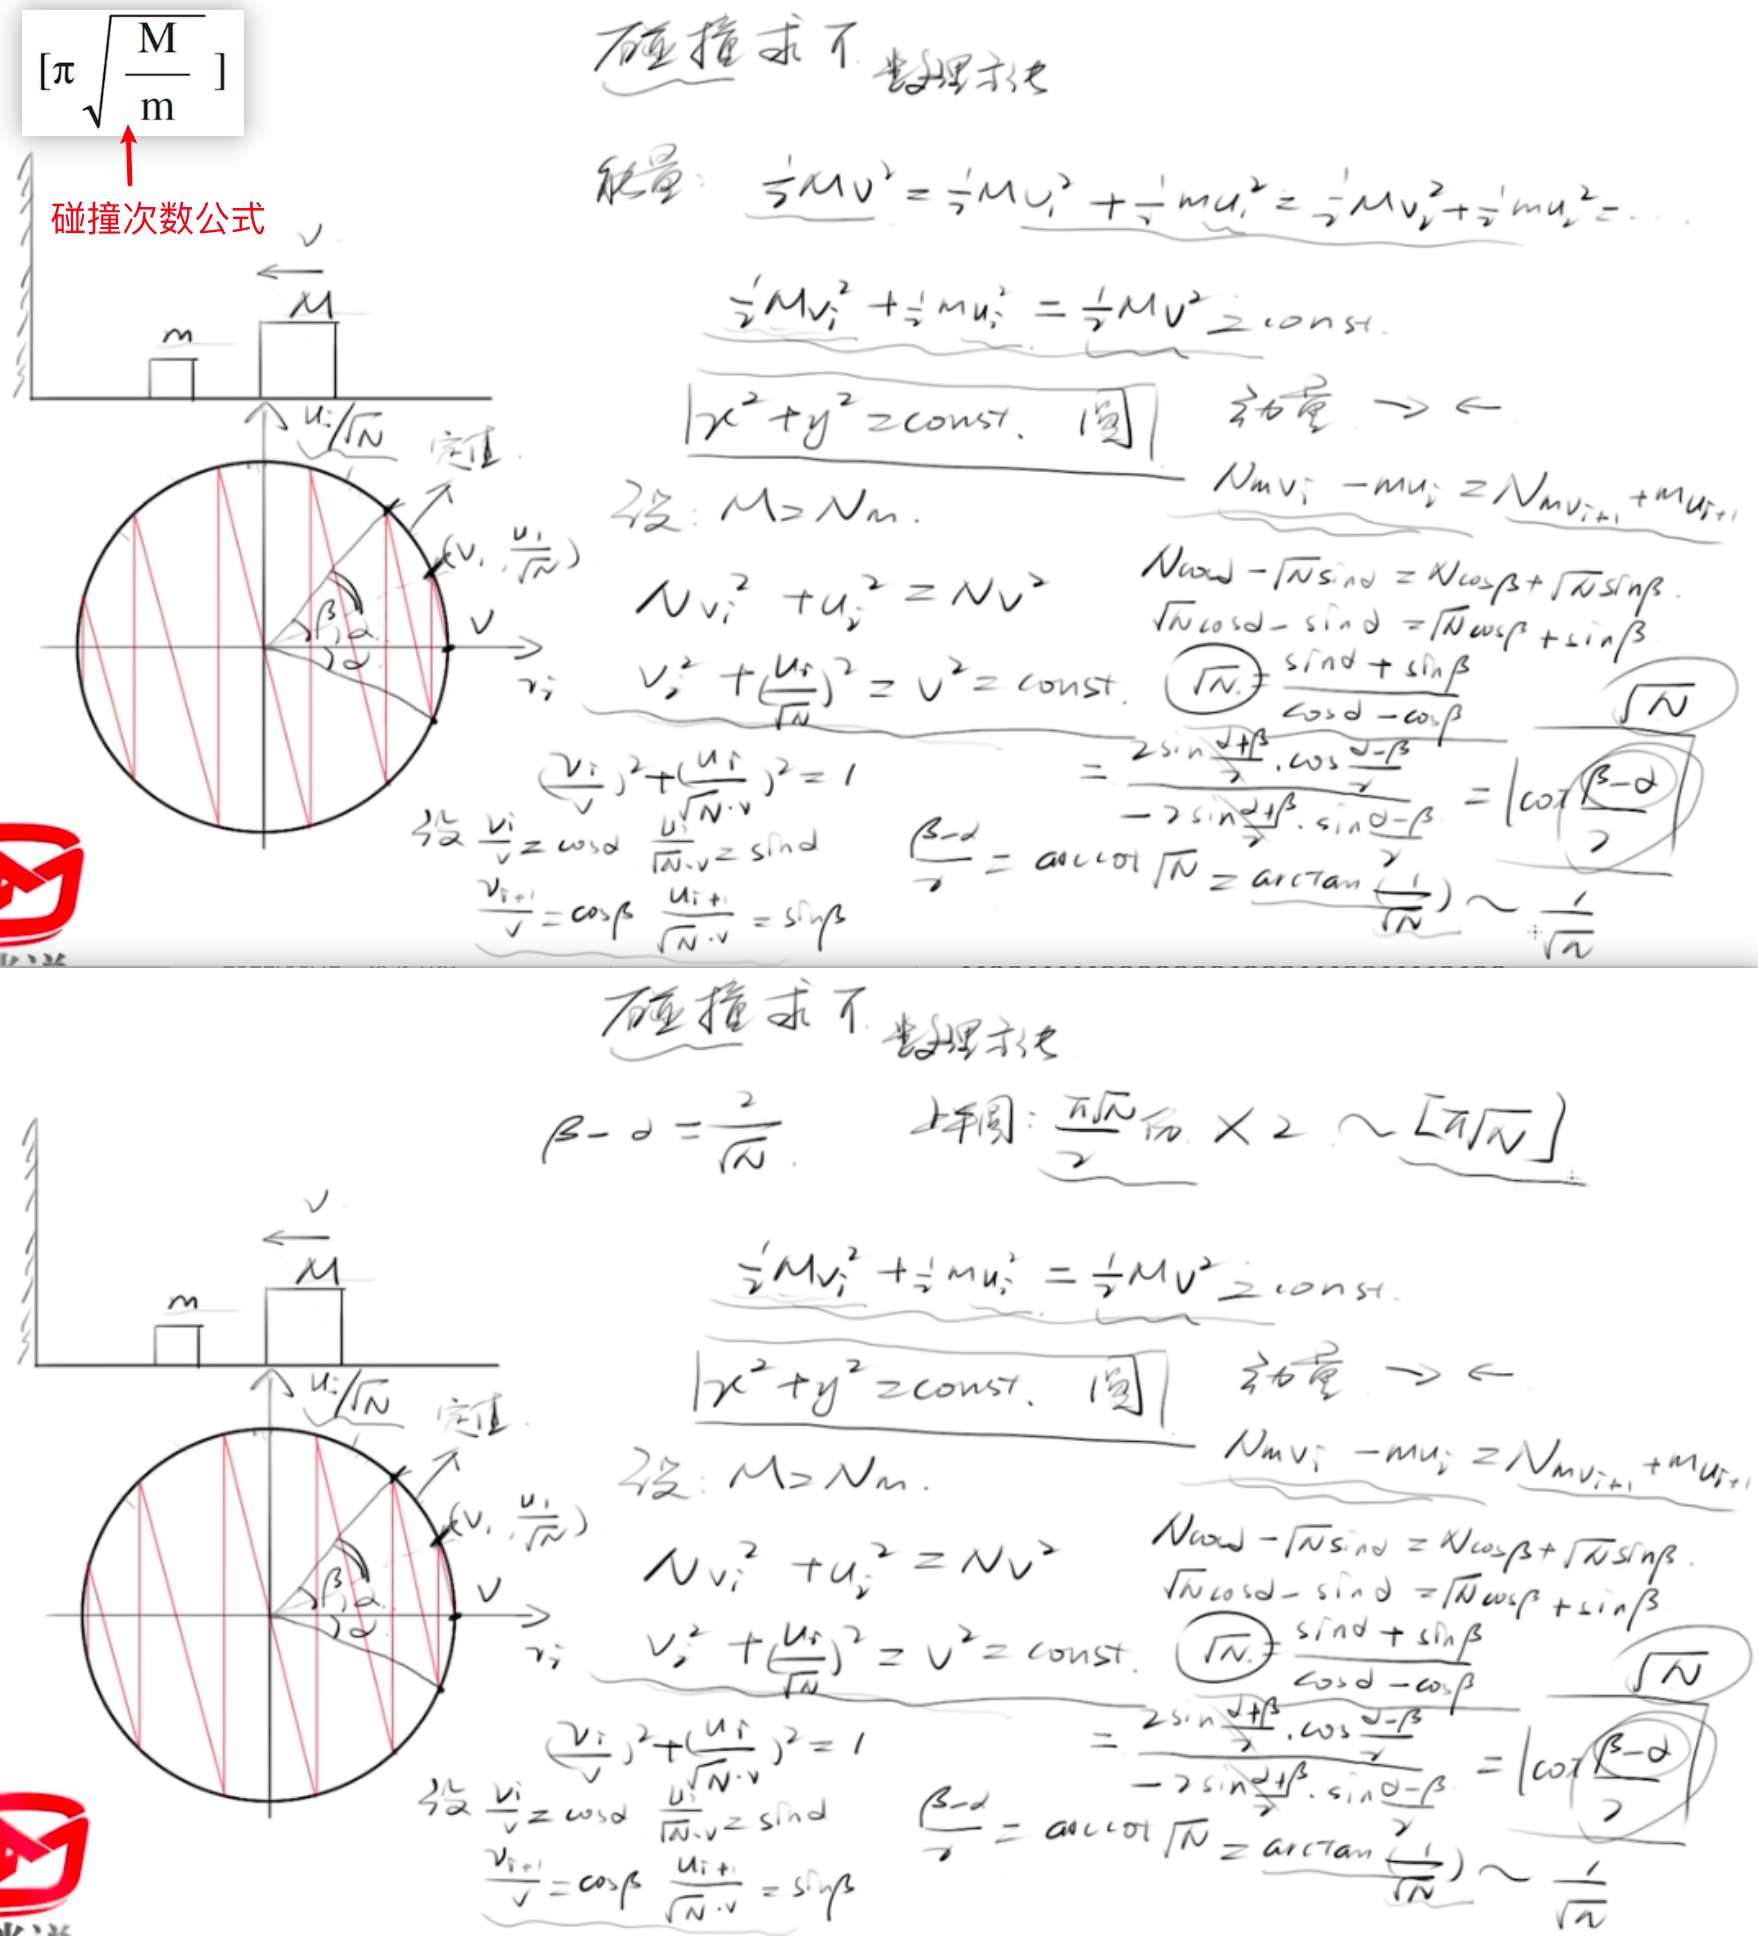 [π√(M/m)]
碰撞次数公式
碰撞求π
数理方法
能量: ½Mv² = ½Mv₁² + ½mu₁² = ½Mv₂² + ½mu₂² = ...
½Mvᵢ² + ½muᵢ² = ½Mv² = const.
x² + y² = const. 圆
动量 → ←
v
M
m
uᵢ/√N
定值
(v, u₁/√N)
v
β
α
α
vᵢ
设: M = Nm.
Nvᵢ² + uᵢ² = Nv²
vᵢ² + (uᵢ/√N)² = v² = const.
(vᵢ/v)² + (uᵢ/√N·v)² = 1
设 vᵢ/v = cosα uᵢ/√N·v = sinα
vᵢ₊₁/v = cosβ uᵢ₊₁/√N·v = sinβ
Nmvᵢ - muᵢ = Nmvᵢ₊₁ + muᵢ₊₁
Ncosα - √N sinα = Ncosβ + √N sinβ.
√N cosα - sinα = √N cosβ + sinβ
√N = (sinα + sinβ)/(cosα - cosβ)
√N
= (2sin (α+β)/2 · cos (α-β)/2)/(-2sin (α+β)/2 · sin (α-β)/2) = |cot (β-α)/2|
(β-α)/2 = arccot √N = arctan (1/√N) ~ 1/√N
碰撞求π
数理方法
β - α = 2/√N.
上半圆: π√N/2 份 × 2 ~ [π√N]
½Mvᵢ² + ½muᵢ² = ½Mv² = const.
x² + y² = const. 圆
动量 → ←
v
M
m
uᵢ/√N
定值
(v, u₁/√N)
v
β
α
α
vᵢ
设: M = Nm.
Nvᵢ² + uᵢ² = Nv²
vᵢ² + (uᵢ/√N)² = v² = const.
(vᵢ/v)² + (uᵢ/√N·v)² = 1
设 vᵢ/v = cosα uᵢ/√N·v = sinα
vᵢ₊₁/v = cosβ uᵢ₊₁/√N·v = sinβ
Nmvᵢ - muᵢ = Nmvᵢ₊₁ + muᵢ₊₁
Ncosα - √N sinα = Ncosβ + √N sinβ.
√N cosα - sinα = √N cosβ + sinβ
√N = (sinα + sinβ)/(cosα - cosβ)
√N
= (2sin (α+β)/2 · cos (α-β)/2)/(-2sin (α+β)/2 · sin (α-β)/2) = |cot (β-α)/2|
(β-α)/2 = arccot √N = arctan (1/√N) ~ 1/√N